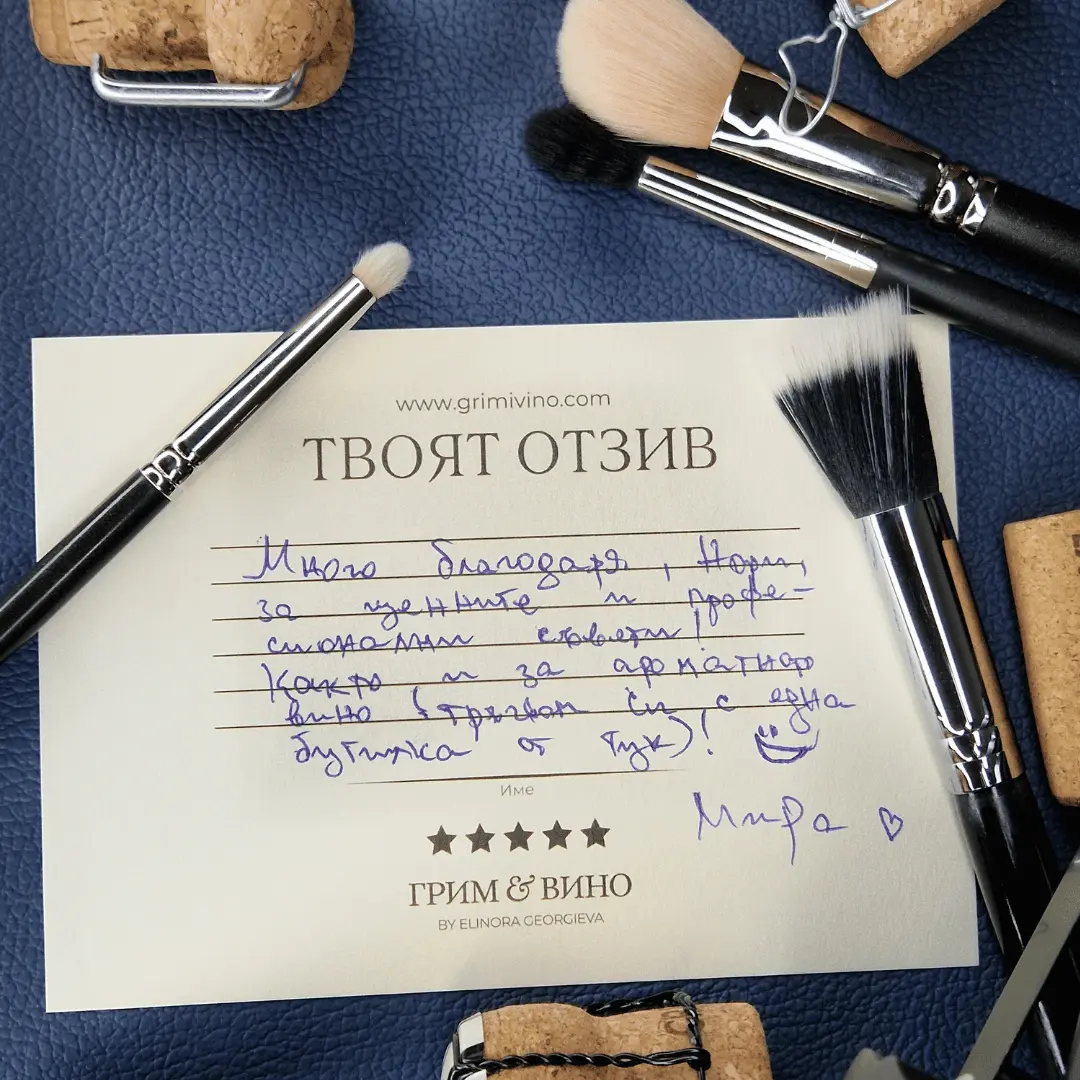 www.grimivino.com
ТВОЯТ ОТЗИВ
Много благодаря, Нори,
за ценните и профе-
сионални съвети!
Както и за ароматно
вино (тръгвам си с една
бутилка от тук)! 
Име
Мира
ГРИМ & ВИНО
BY ELINORA GEORGIEVA